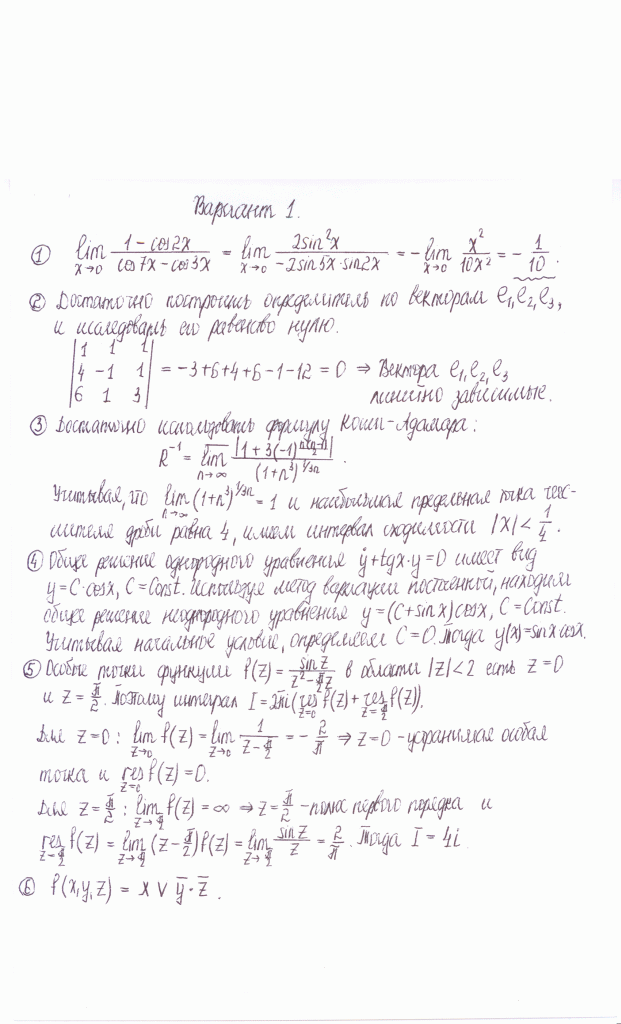 Вариант 1.
① lim x→0 (1 - cos2x)/(cos7x - cos3x) = lim x→0 2sin²x/(-2sin5x·sin2x) = - lim x→0 x²/(10x²) = - 1/10.
② Достаточно построить определитель по векторам e₁, e₂, e₃,
и исследовать его равенство нулю.
|1 1 1|
|4 -1 1| = -3+6+4+6-1-12 = 0 ⇒ Вектора e₁, e₂, e₃
|6 1 3| линейно зависимые.
③ Достаточно использовать формулу Коши-Адамара:
R⁻¹ = lim n→∞ |1+3(-1)^(n(n-1)/2)|/(1+n³)^(1/3n).
Учитывая, что lim n→∞ (1+n³)^(1/3n) = 1 и наибольшая предельная точка чис-
лителя дроби равна 4, имеем интервал сходимости |X| < 1/4.
④ Общее решение однородного уравнения ẏ+tgx·y=0 имеет вид
y=C·cosx, C=Const. Используя метод вариации постоянной, находим
общее решение неоднородного уравнения y=(C+sinx)cosx, C=Const.
Учитывая начальное условие, определяем C=0. Тогда y(x)=sinx cosx.
⑤ Особые точки функции f(z) = sinz/(z² - π/2 z) в области |z|<2 есть z=0
и z = π/2. Поэтому интеграл I = 2πi(res z=0 f(z) + res z=π/2 f(z)).
Для z=0: lim z→0 f(z) = lim z→0 1/(z - π/2) = - 2/π ⇒ z=0 - устранимая особая
точка и res z=0 f(z) = 0.
Для z = π/2: lim z→π/2 f(z) = ∞ ⇒ z = π/2 - полюс первого порядка и
res z=π/2 f(z) = lim z→π/2 (z - π/2)f(z) = lim z→π/2 sinz/z = 2/π. Тогда I = 4i
⑥ f(x,y,z) = x ∨ ȳ·z̄.